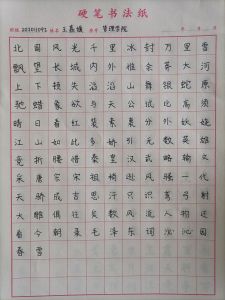 硬笔书法纸
班级 姓名 王嘉媛 学号 管理学院
北国风光千里冰封万里雪
飘望长城内外惟余莽大河
上下顿失滔滔山舞银蛇原
驰蜡象欲与天公试比高须
晴日看红装素裹分外妖娆
江山如此多娇引无数英雄
竞折腰惜秦皇汉武略输文
采唐宗宋祖稍逊风骚一代
天骄成吉思汗只识弯弓射
大雕俱往矣数风流人物还
看今朝 毛泽东词 沁园
春雪